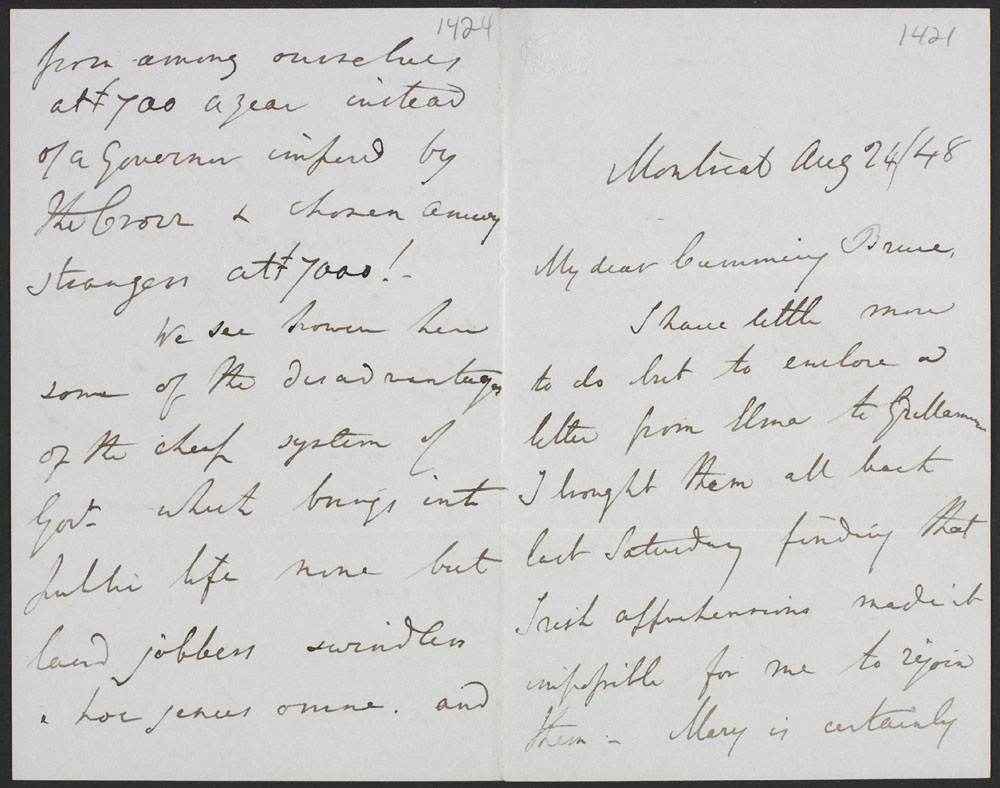 1424
from among ourselves
at £700 a year instead
of a Governor imposed by
the Crown & chosen among
strangers at £7000!-
We see however here
some of the disadvantages
of the cheap system of
Govt- which brings into
public life none but
land jobbers swindlers
& hoc genus omne. and
1421
Montreal Aug 24/48
My dear Cumming Bruce,
I have little more
to do but to enclose a
letter from Elma to Grandmamma
I brought them all back
last Saturday finding that
Irish apprehensions made it
impossible for me to rejoin
them - Mary is certainly